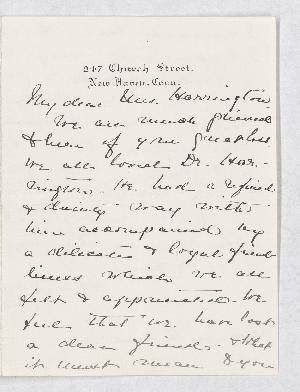 247 Church Street.
New Haven, Conn.
My dear Mrs. Harrington
We are much grieved
to hear of your great loss
We all loved Dr. Har-
rington. He had a refined
& dainty way with
him accompanied by
a delicate & loyal friend
liness which we all
felt & appreciated. We
feel that we have lost
a dear friend. What
it must mean to you